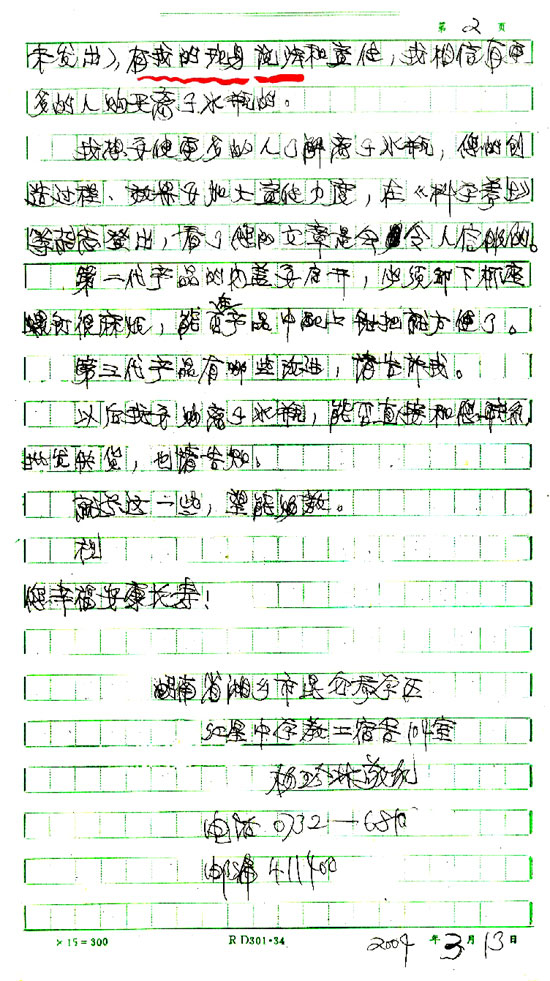 第 2 页
未发出），有我的现身说法和宣传，我相信有更
多的人购买离子水瓶的。
我想要使更多的人了解离子水瓶，您的创
造过程、效果要加大宣传力度，在《科学养生》
等杂志登出，看了您的文章是会令人信服的。
第二代产品的内盖要启开，必须卸下析座
螺钉很麻烦，能否产品中配上就方便了。
第三代产品有哪些改进，请告诉我。
以后我要购离子水瓶，能否直接和您联系
批发供货，也请告知。
就写这一些，望能赐教。
祝
您幸福安康长寿！
湖南省湘乡市学区
红星中学教工宿舍104室
杨敬礼
电话 0732—681
邮编 411400
×15=300 RD301·34 2004 年 3 月 13 日